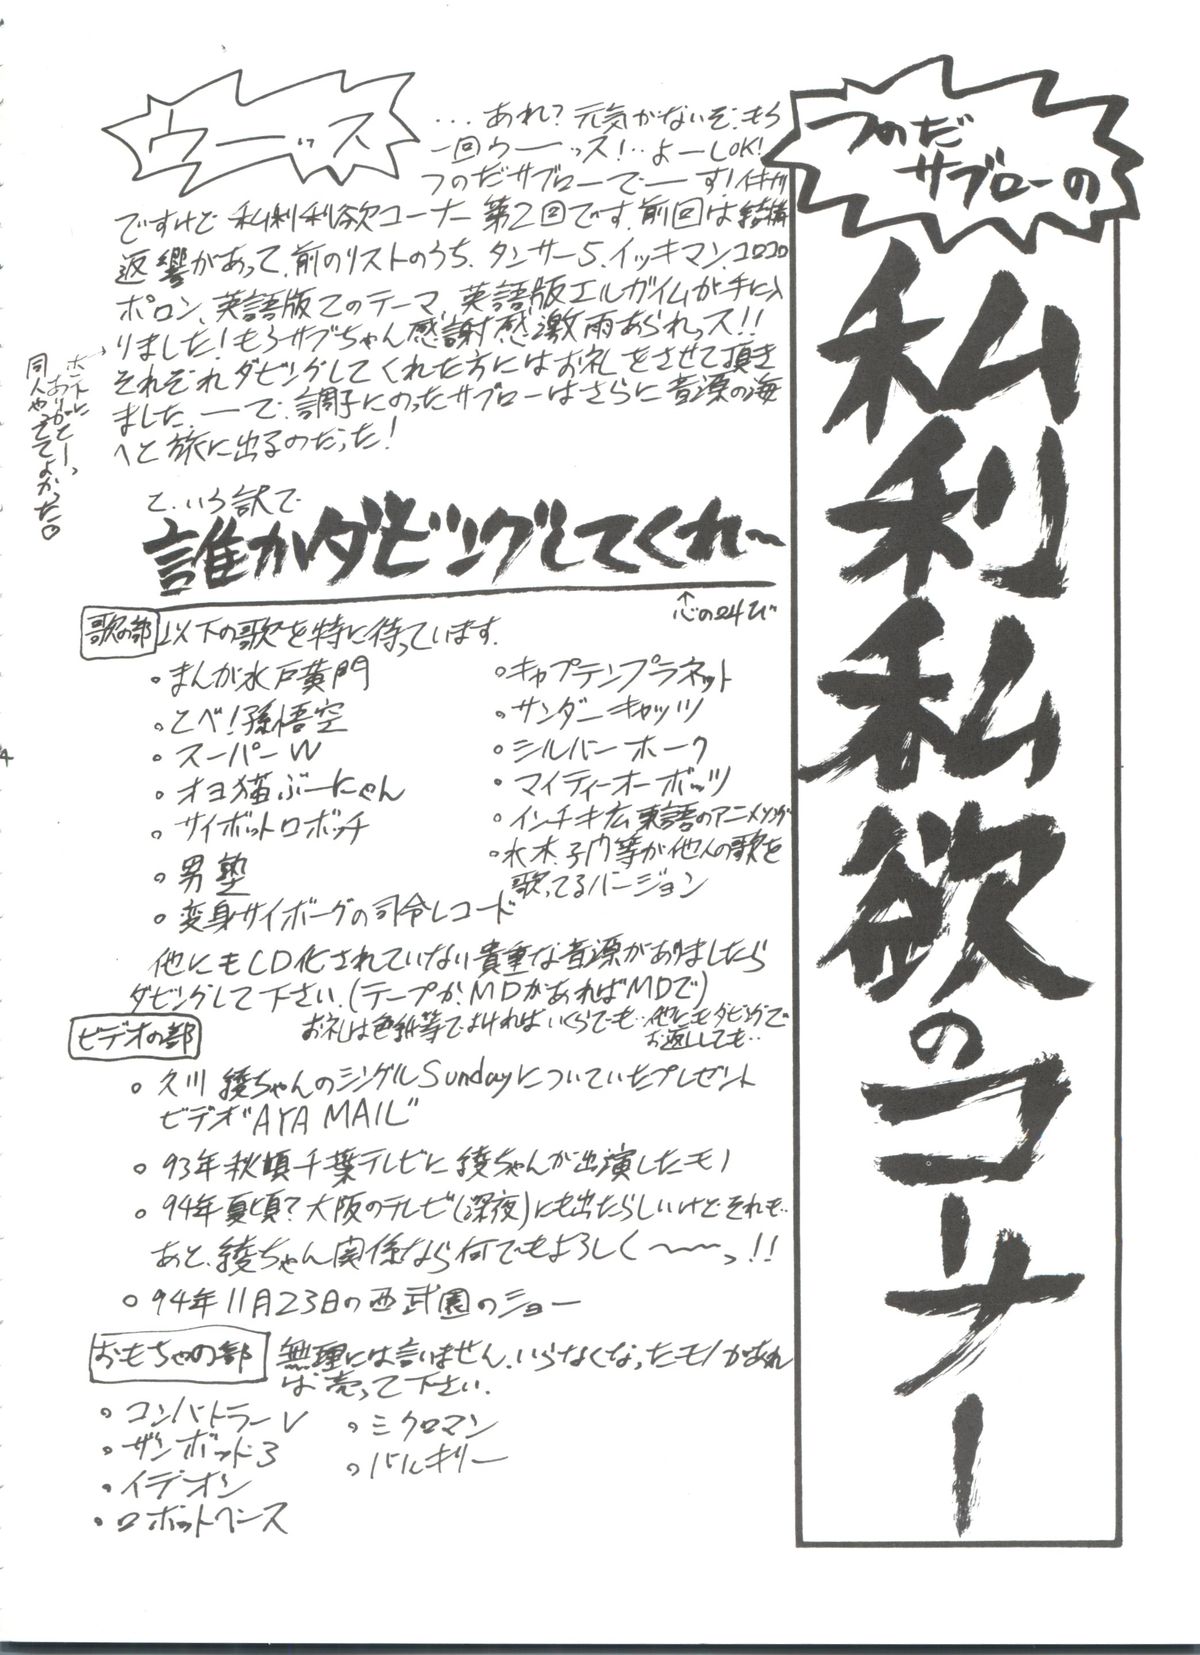 つのだ
サブローの
私利私欲のコーナー
ウーッス
...あれ?元気がないぞ.もう
一回ウーーッス!..よーしOK!
つのだサブローでーーす!イキナリ
ですけど私利私欲コーナー第2回です.前回は結構
返響があって.前のリストのうち.タンサー5.イッキマン.コロコロ
ポロン、英語版Zのテーマ、英語版エルガイムが手に入
りました!もうサブちゃん感謝感激雨あられっス!!
それぞれダビングしてくれた方にはお礼をさせて頂き
ました.ーーで.調子にのったサブローはさらに音源の海
へと旅に出るのだった!
ホントに
ありがとーっ
同人やっててよかった。
と.いう訳で
誰かダビングしてくれ~
↑心の叫び
歌の部 以下の歌を特に待っています.
・まんが水戸黄門
・とべ!孫悟空
・スーパーW
・オヨ猫ぶーにゃん
・サイボットロボッチ
・男塾
・変身サイボーグの司令レコード
・キャプテンプラネット
・サンダーキャッツ
・シルバーホーク
・マイティーオーボッツ
・インチキ広東語のアニメソング
・水木.子門等が他人の歌を
歌ってるバージョン
他にもCD化されていない貴重な音源がありましたら
ダビングして下さい.(テープか.MDがあればMDで)
お礼は色紙等でよければいくらでも..他にもダビングで
お返ししても..
ビデオの部
・久川綾ちゃんのシングルSundayについていたプレゼント
ビデオ"AYA MAIL"
・93年秋頃千葉テレビに綾ちゃんが出演したモノ
・94年夏頃?大阪のテレビ(深夜)にも出たらしいけどそれも..
あと.綾ちゃん関係なら何でもよろしく〜〜〜っ!!
・94年11月23日の西武園のショー
おもちゃの部 無理には言いません.いらなくなったモノがあれ
ば売って下さい.
・コンバトラーV
・ザンボット3
・イデオン
・ロボットベース
・ミクロマン
・バルキリー